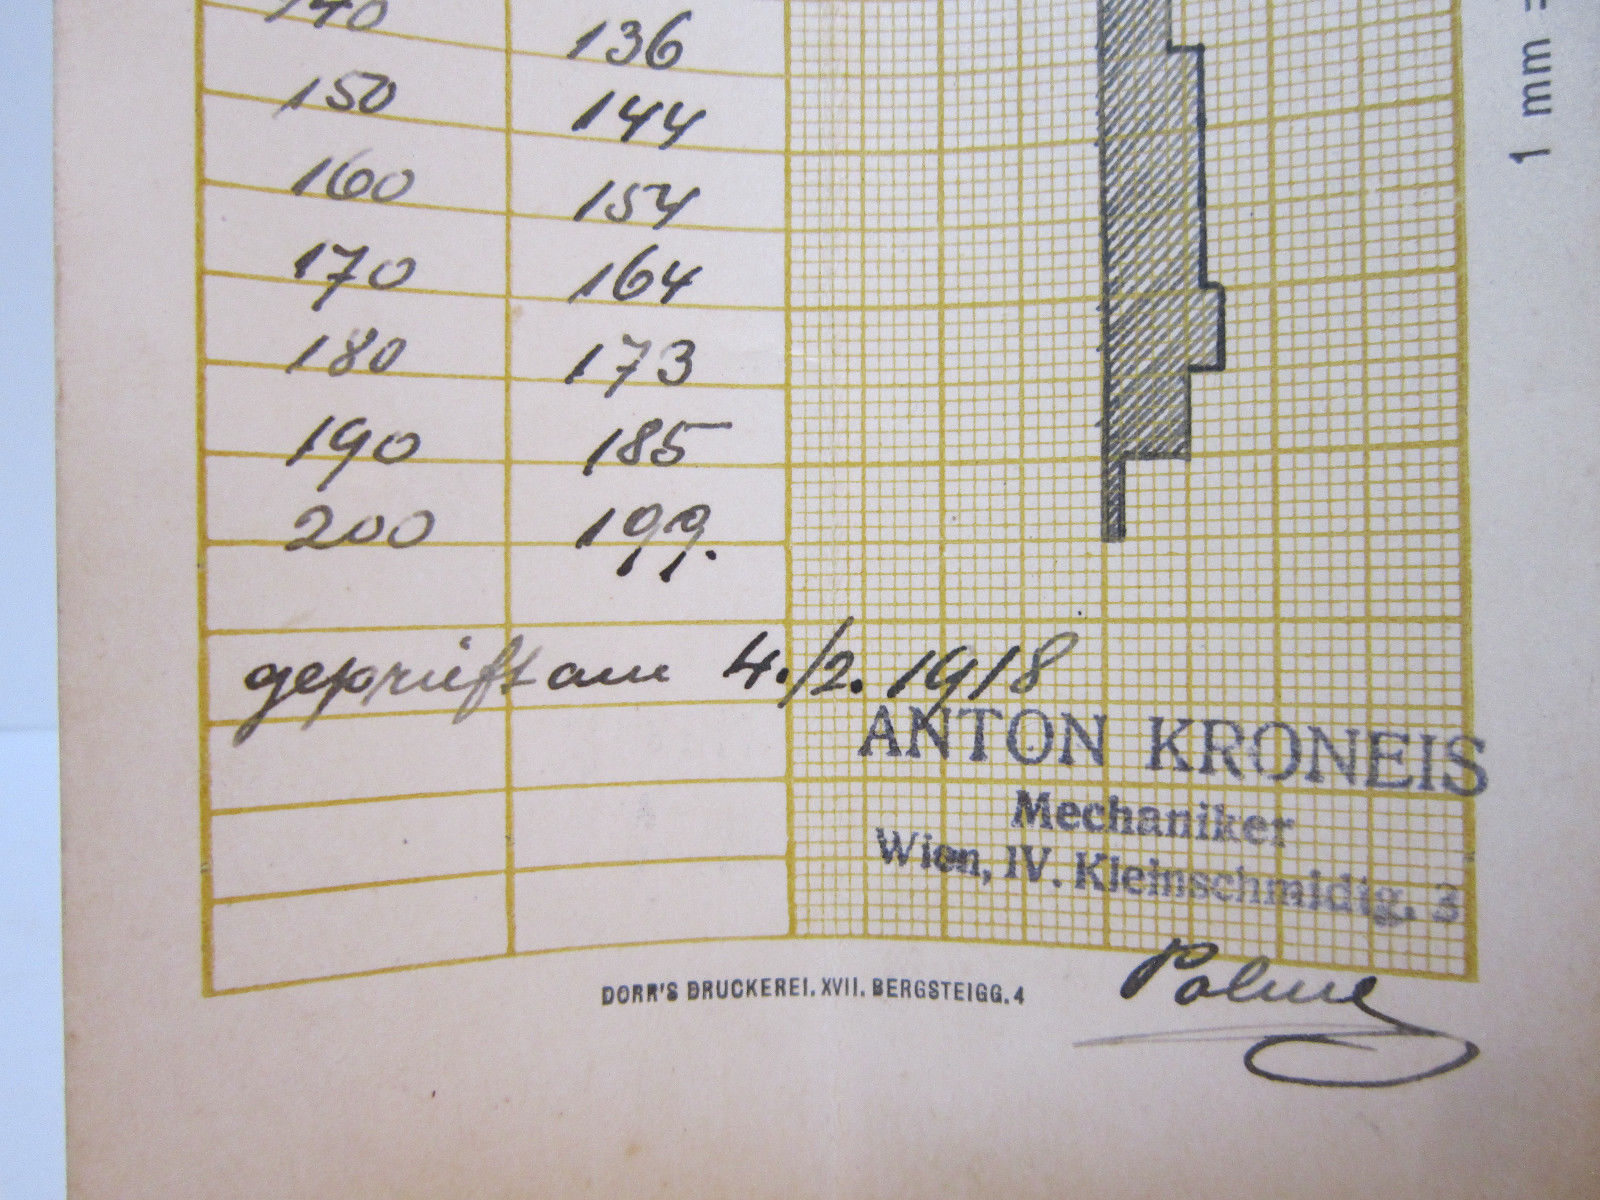 140 136
150 144
160 154
170 164
180 173
190 185
200 199.
geprüft am 4./2. 1918
ANTON KRONEIS
Mechaniker
Wien, IV. Kleinschmidg. 3
DORR'S DRUCKEREI. XVII. BERGSTEIGG. 4
1 mm =